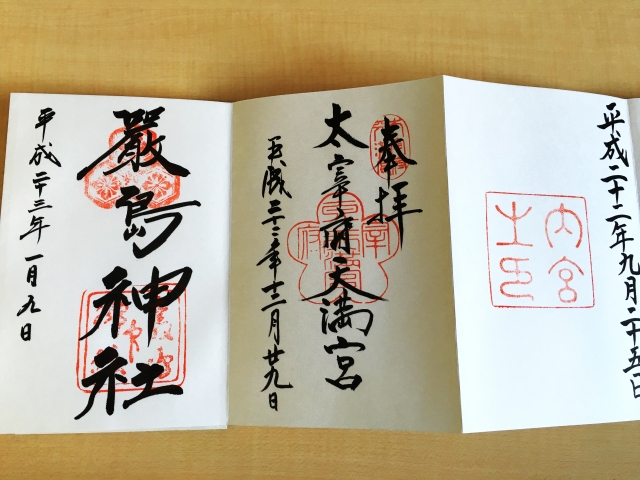 平成二十二年九月二十五日
内宮
之印
奉拝
太宰府天満宮
平成二十二年十二月廿九日
嚴島神社
平成二十三年一月九日